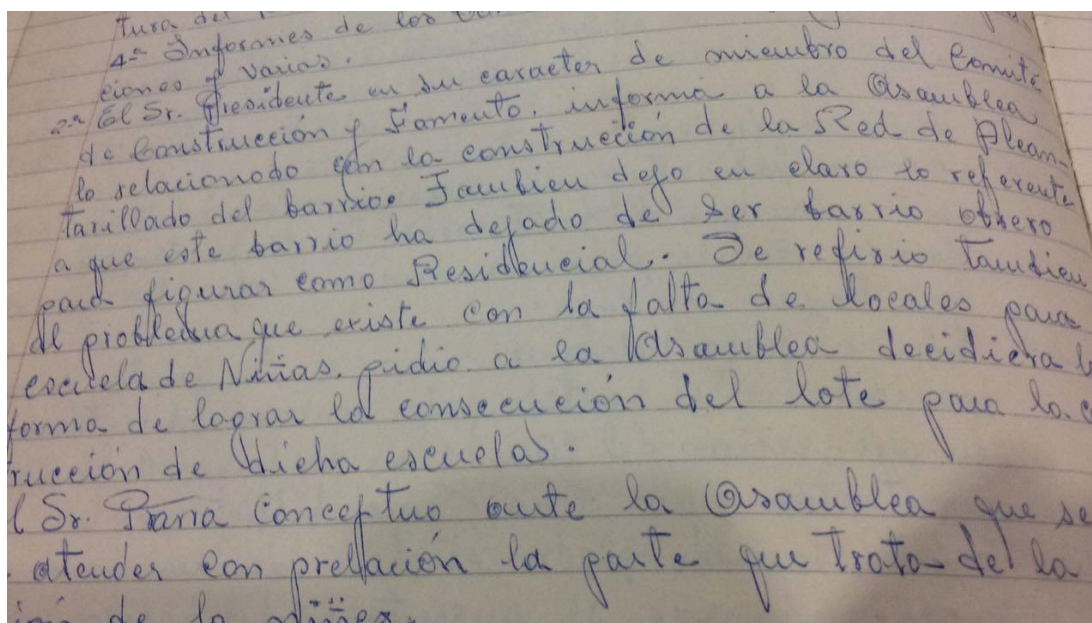 tura del
4º Informes de los
ciones y varias.
2º El Sr. Presidente en su caracter de miembro del Comité
de Construcción y Fomento, informa a la Asamblea
lo relacionado con la construcción de la Red de Alcan-
tarillado del barrio. Tambien dejo en claro lo referente
a que este barrio ha dejado de ser barrio obrero
para figurar como Residencial. Se refirio tambien
al problema que existe con la falta de locales para
escuela de Niñas. pidio a la Asamblea decidiera l
forma de lograr la consecución del lote para la c
rucción de dicha escuelas.
l Sr. Parra Conceptuo ante la Asamblea que se
atender con prelación la parte que trata de la
de la niñez.